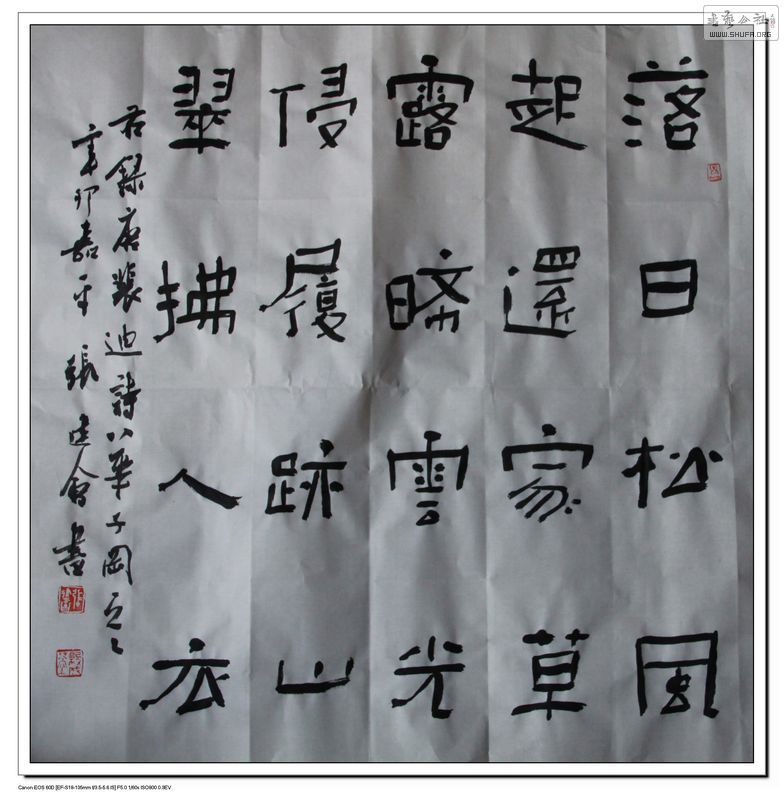 书艺公社
WWW.SHUFA.ORG
落日松風
起還家草
露晞雲光
侵履跡山
翠拂人衣
右錄唐裴迪詩華子岡
辛卯嘉平張建會書
Canon EOS 60D [EF-S18-135mm f/3.5-5.6 IS] F5.0 1/60s ISO800 0.3EV